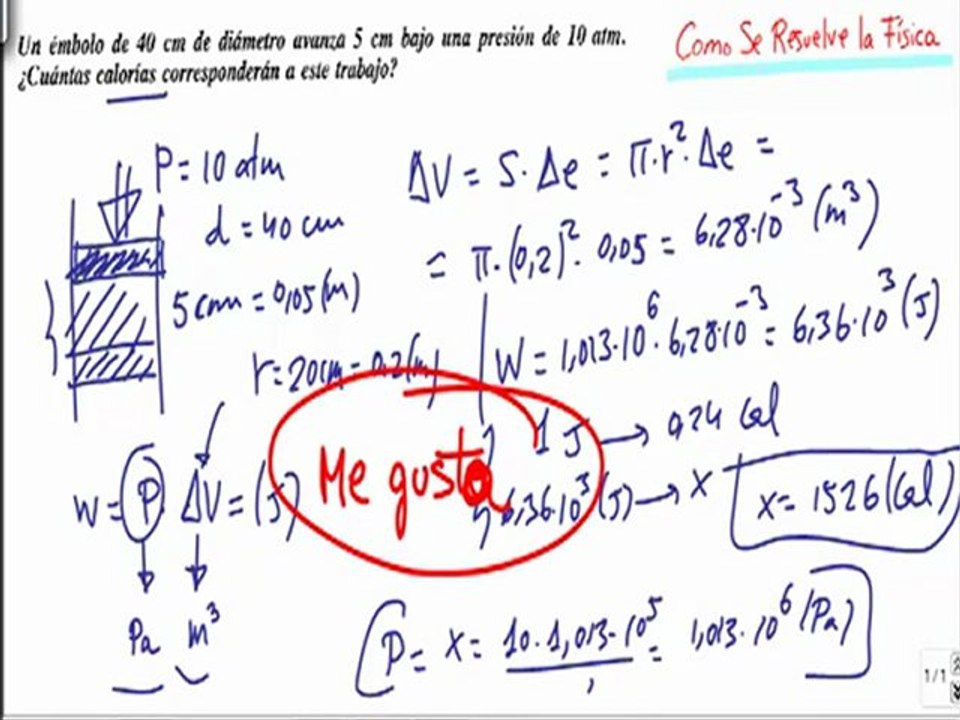 Un émbolo de 40 cm de diámetro avanza 5 cm bajo una presión de 10 atm.
¿Cuántas calorías corresponderán a este trabajo?
Como Se Resuelve la Física
P = 10 atm
d = 40 cm
5 cm = 0,05 (m)
r = 20 cm = 0,2 (m)
ΔV = S · Δe = π · r² · Δe =
= π · (0,2)² · 0,05 = 6,28 · 10⁻³ (m³)
W = 1,013 · 10⁶ · 6,28 · 10⁻³ = 6,36 · 10³ (J)
1 J → 0,24 Cal
6,36 · 10³ (J) → X
X = 1526 (Cal)
Me gusta
W = P · ΔV = (J)
Pa m³
P = X = 10 · 1,013 · 10⁵ = 1,013 · 10⁶ (Pa)
1/1